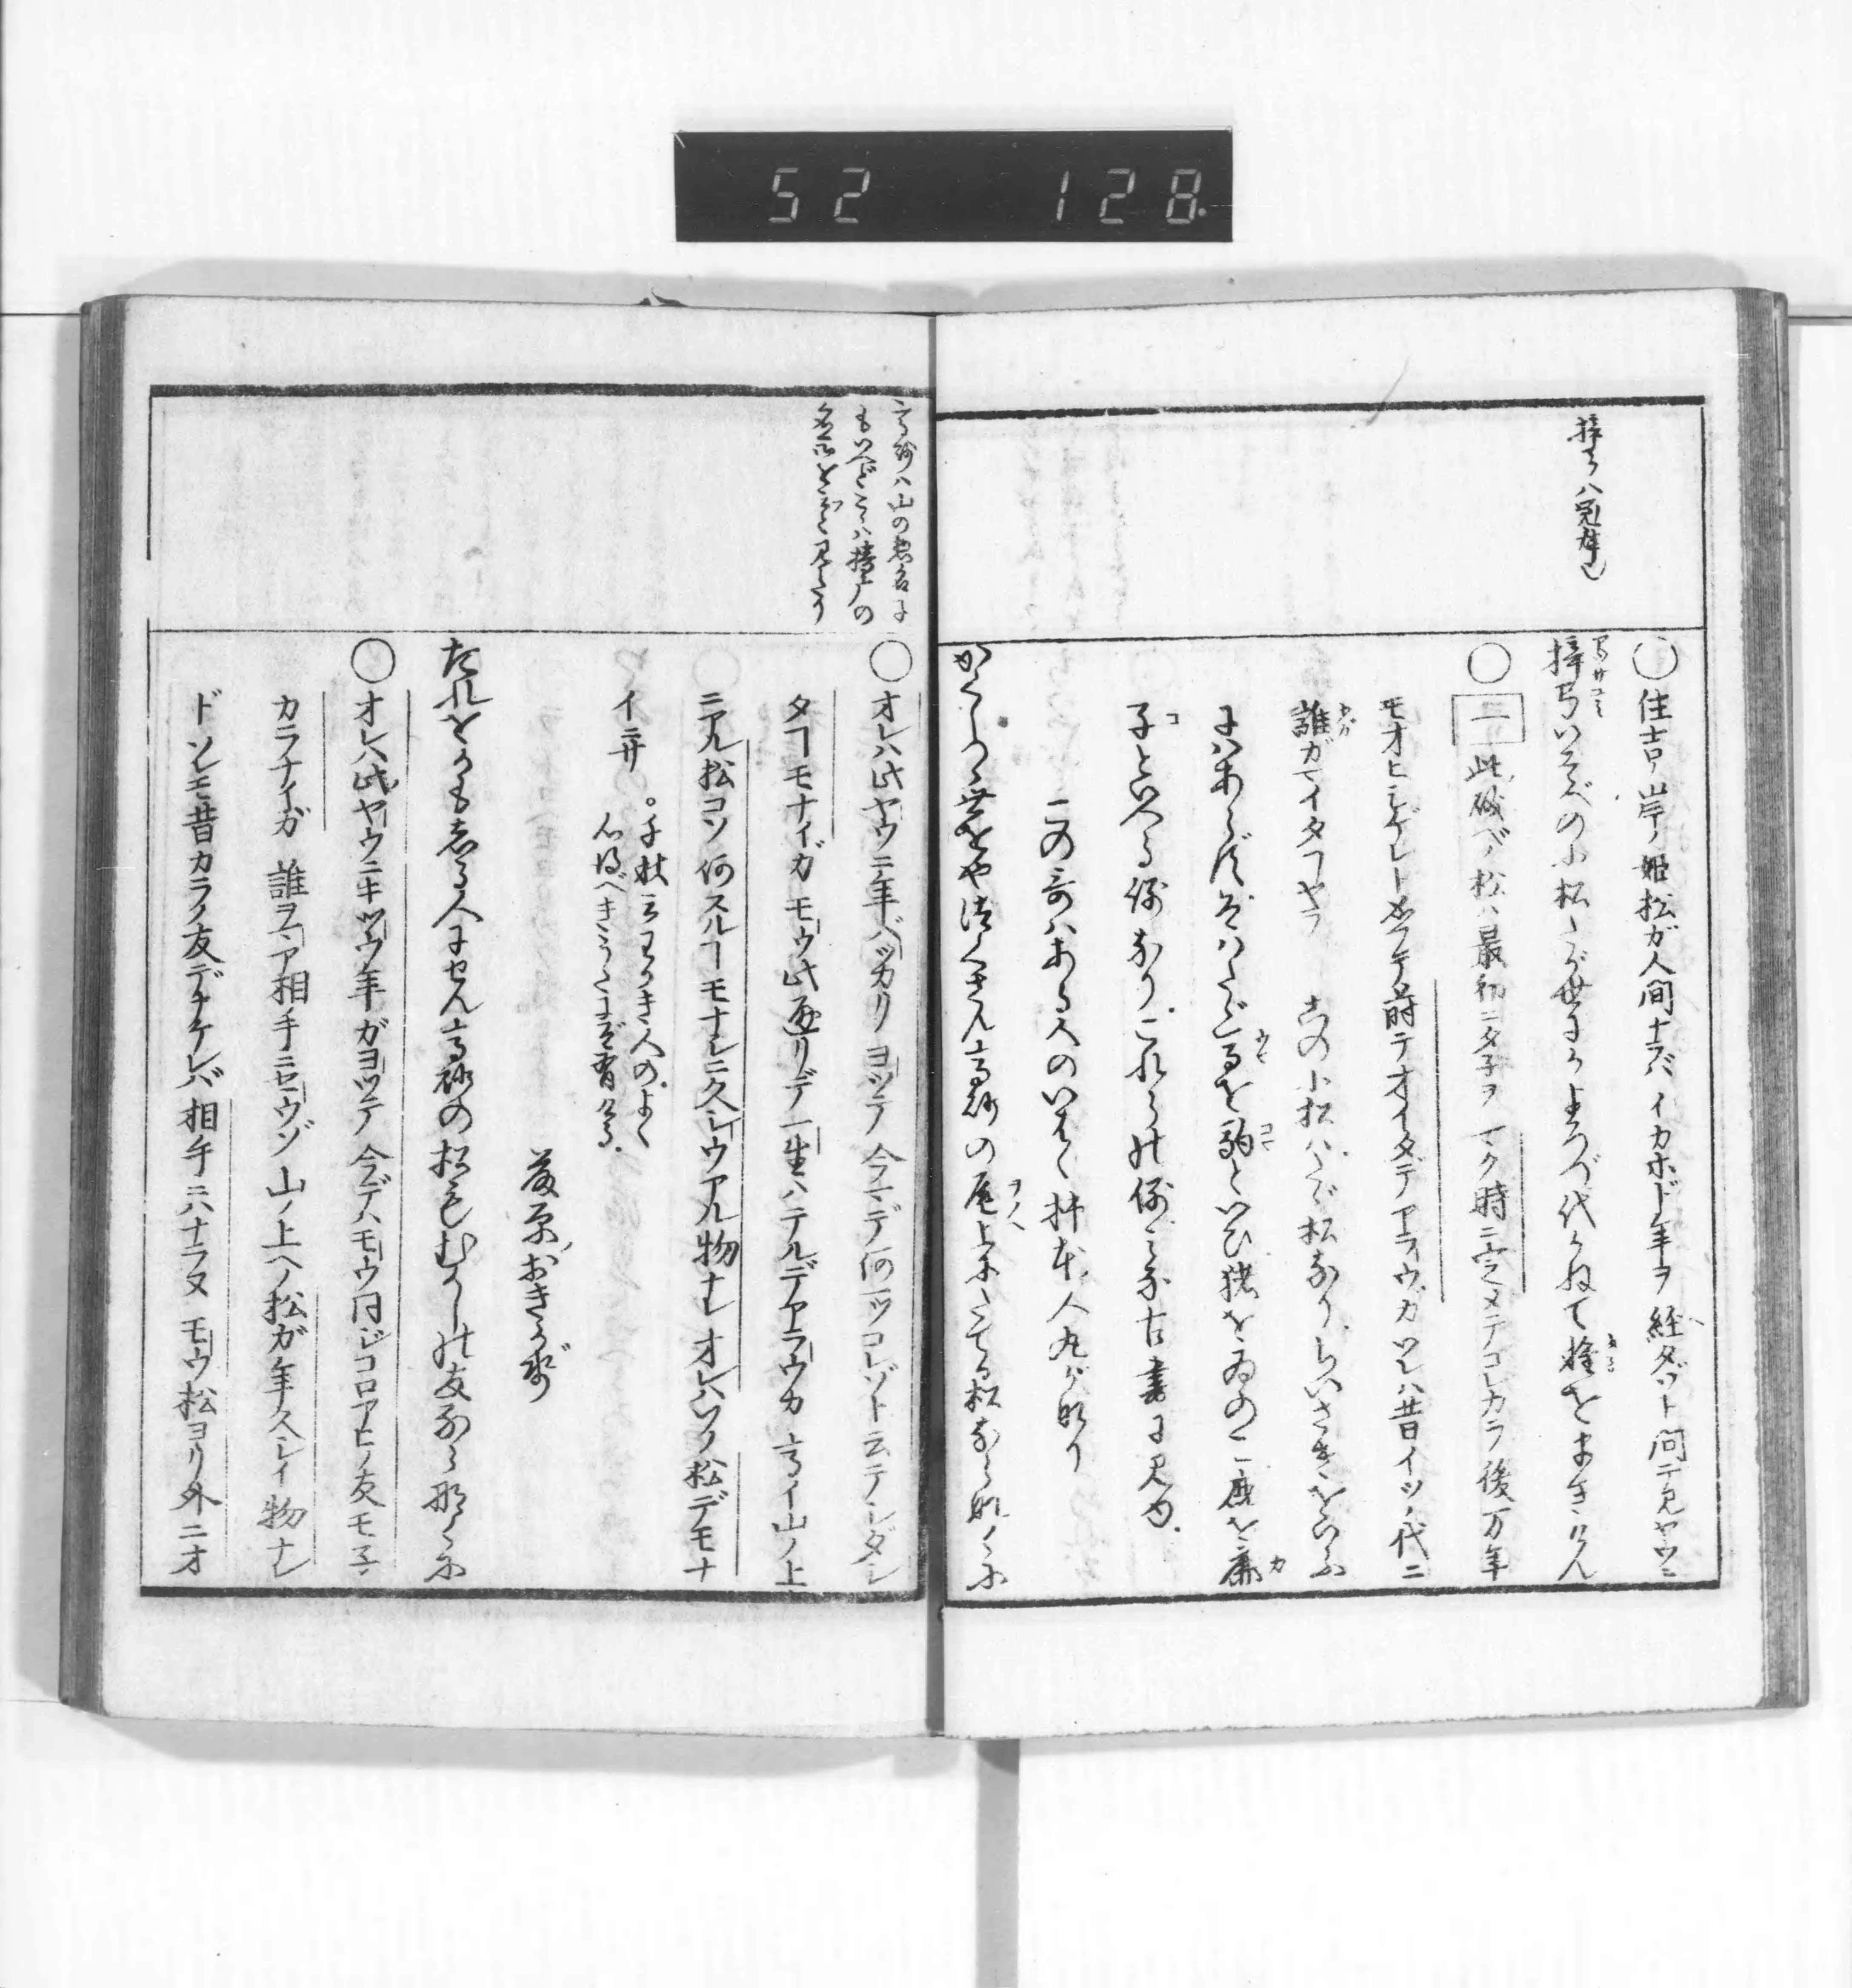 52 128
梓弓ハ冠辞也
○住吉ノ岸ノ姫松ガ人間ナラバイカホド年ヲ経ダゾト問テ見ヤウニ
梓弓いそべの小松たが世にかよろづ代かねて種をまきけん
○二此磯ベノ松ハ最初ニタ子ヲマク時ニ定メテコレカラ後万年
モオヒシゲレト 蒔テオイタデアラウガソレハ昔イツノ代ニ
誰ガマイタヿヤラ この小松はたゞ松なり。ちひさきをいふ
にはあらず。そはたゞ馬を駒といひ猪をゐのこ鹿を鹿
子といへる例なり。これらの例みな古書に見ゆ。
この哥はある人のいはく柿本人丸が也
かくしつゝ世をや尽くさん高砂の尾上にたてる松ならなくに
高砂ハ山の惣名に
もいへどこゝハ播磨の
名所とぞ見えたる
○オレハ此ヤウニ年バッカリヨッテ今マデ何一ツコレゾト云テシダシ
タヿモナイガモウ此通リデ一生ハテルデアラウカ高イ山ノ上
ニアル松コソ何スルヿモナシニ久シウアル物ナレオレハソノ松デモナ
イニサ
○千秋云わかき人のよく
心得べきうたにぞ有ける。
藤原おきかぜ
たれをかもしる人にせん高砂の松もむかしの友ならなくに
○オレハ此ヤウニキツウ年ガヨッテ今デハモウ同ジコロアヒノ友モ子
カラナイガ誰ヲマア相手ニセウゾ山ノ上ヘノ松ガ年久シイ物ナレ
ドソレモ昔カラノ友デナケレバ相手ニハナラヌモウ松ヨリ外ニオ